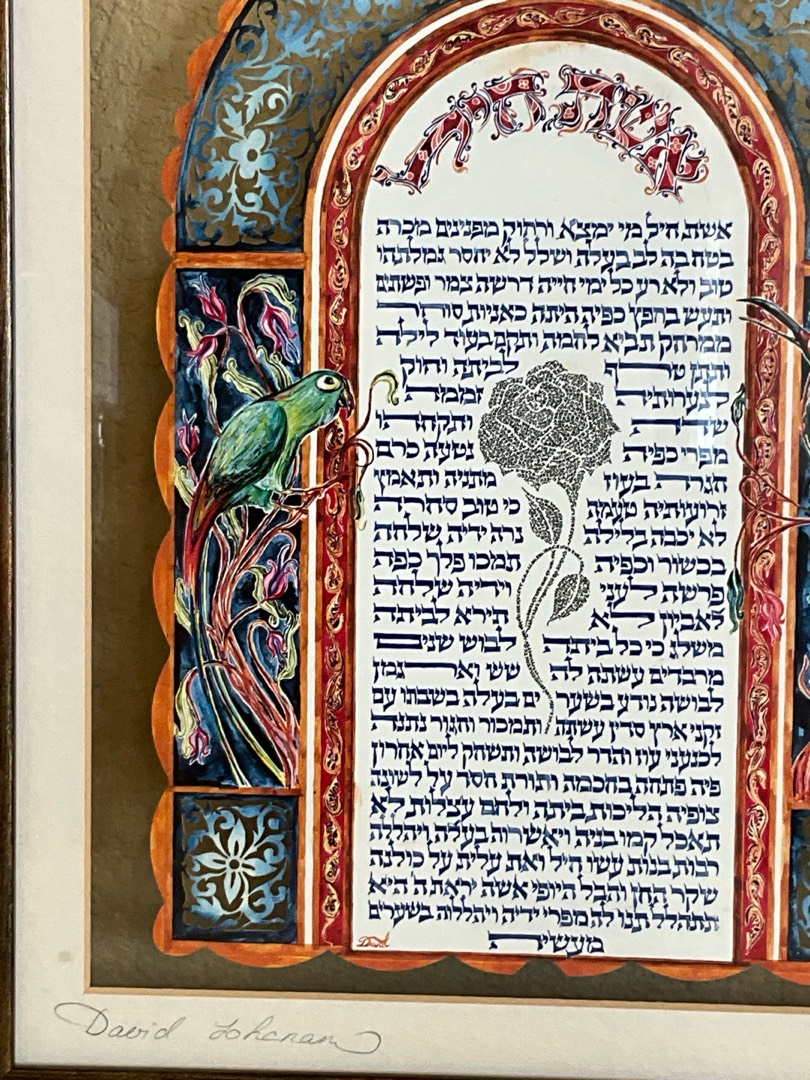 אשת חיל
אשת חיל מי ימצא ורחוק מפנינים מכרה
בטח בה לב בעלה ושלל לא יחסר גמלתהו
טוב ולא רע כל ימי חייה דרשה צמר ופשתים
ותעש בחפץ כפיה היתה כאניות סוחר
ממרחק תביא לחמה ותקם בעוד לילה
ותתן טרף לביתה וחוק
לנערותיה זממה
שדה ותקחהו
מפרי כפיה נטעה כרם
חגרה בעוז מתניה ותאמץ
זרועותיה טעמה כי טוב סחרה
לא יכבה בלילה נרה ידיה שלחה
בכשור וכפיה תמכו פלך כפה
פרשה לעני וידיה שלחה
לאביון לא תירא לביתה
משלג כי כל ביתה לבוש שנים
מרבדים עשתה לה שש וארגמן
לבושה נודע בשערים בעלה בשבתו עם
זקני ארץ סדין עשתה ותמכור וחגור נתנה
לכנעני עוז והדר לבושה ותשחק ליום אחרון
פיה פתחה בחכמה ותורת חסד על לשונה
צופיה הליכות ביתה ולחם עצלות לא
תאכל קמו בניה ויאשרוה בעלה ויהללה
רבות בנות עשו חיל ואת עלית על כולנה
שקר החן והבל היופי אשה יראת ה' היא
תתהלל תנו לה מפרי ידיה ויהללוה בשערים
מעשיה
David
David